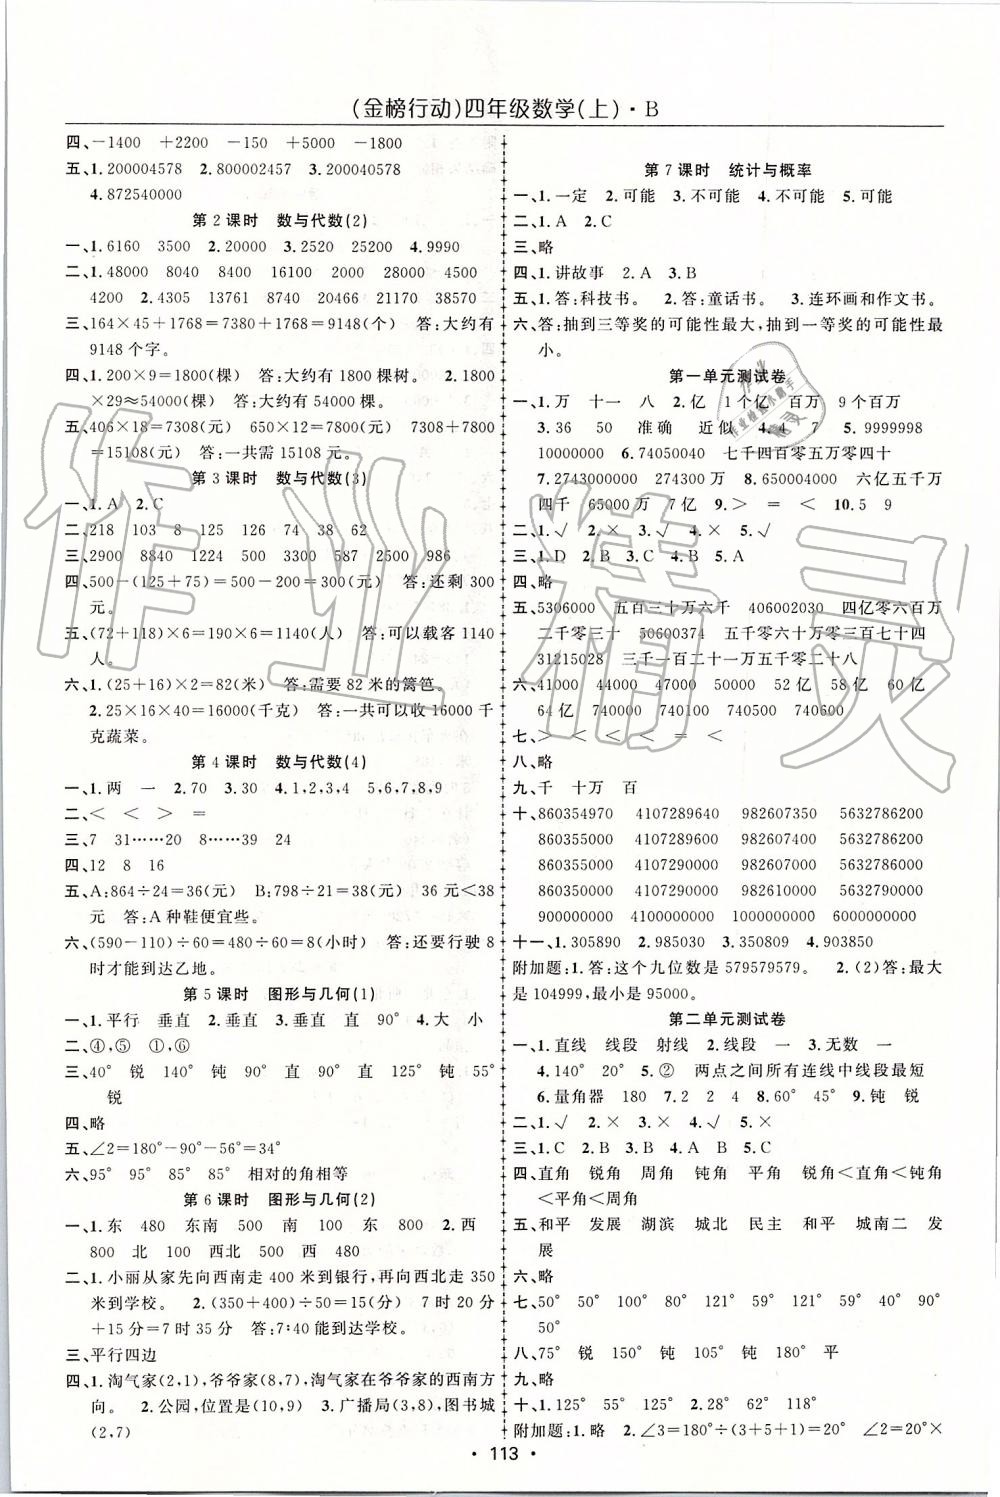 (金榜行动)四年级数学(上)·B
四、－1400　＋2200　－150　＋5000　－1800
五、1.200004578　2.200004578　3.200040578
4.872540000
第 2 课时　数与代数(2)
一、1.6160　3500　2.20000　3.2520　25200　4.9990
二、1.48000　8040　8400　16100　2000　28000　4500
4200　2.4305　13761　8740　20466　21170　38570
三、164×45＋1768＝7380＋1768＝9148(个)　答:大约有
9148 个字。
四、1.200×9＝1800(棵)　答:大约有 1800 棵树。　2.1800
×29≈54000(棵)　答:大约有 54000 棵。
五、406×18＝7308(元)　650×12＝7800(元)　7308＋7800
＝15108(元)　答:一共需 15108 元。
第 3 课时　数与代数(3)
一、1.A　2.C
二、218　103　8　125　126　74　38　62
三、2900　8840　1224　500　3300　587　2500　986
四、500－(125＋75)＝500－200＝300(元)　答:还剩 300
元。
五、(72＋118)×6＝190×6＝1140(人)　答:可以载客 1140
人。
六、1.(25＋16)×2＝82(米)　答:需要 82 米的篱笆。
2.25×16×40＝16000(千克)　答:一共可以收 16000 千
克蔬菜。
第 4 课时　数与代数(4)
一、1.两　一　2.70　3.30　4.1,2,3,4　5,6,7,8,9
二、＜　＜　＞　＝
三、7　31……20　8……39　24
四、12　8　16
五、A:864÷24＝36(元)　B:798÷21＝38(元)　36 元＜38
元　答:A 种鞋便宜些。
六、(590－110)÷60＝480÷60＝8(小时)　答:还要行驶 8
时才能到达乙地。
第 5 课时　图形与几何(1)
一、1.平行　垂直　2.垂直　3.垂直　直　90°　4.大　小
二、④,⑤　①,⑥
三、40°　锐　140°　钝　90°　直　90°　直　125°　钝　55°
锐
四、略
五、∠2＝180°－90°－56°＝34°
六、95°　95°　85°　85°　相对的角相等
第 6 课时　图形与几何(2)
一、1.东　480　东南　500　南　100　东　800　2.西
800　北　100　西北　500　西　480
二、1.小丽从家先向西南走 400 米到银行,再向西北走 350
米到学校。　2.(350＋400)÷50＝15(分)　7 时 20 分
＋15 分＝7 时 35 分　答:7:40 能到达学校。
三、平行四边
四、1.淘气家(2,1),爷爷家(8,7),淘气家在爷爷家的西南方
向。　2.公园,位置是(10,9)　3.广播局(3,8),图书城
(2,7)
第 7 课时　统计与概率
一、1.一定　2.可能　3.不可能　4.不可能　5.可能
二、1.A　2.C
三、略
四、1.讲故事　2.A　3.B
五、1.答:科技书。　2.答:童话书。　3.连环画和作文书。
六、答:抽到三等奖的可能性最大,抽到一等奖的可能性最
小。
第一单元测试卷
一、1.万　十一　八　2.亿　1个亿　百万　9 个百万
3.36　50　准确　近似　4.4　7　5.9999998
10000000　6.74050040　七千四百零五万零四十
7.2743000000　274300 万　8.650004000　六亿五千万
四千　65000万　7 亿　9.＞　＝　＜　10.5　9
二、1.√　2.×　3.√　4.×　5.√
三、1.D　2.B　3.B　4.B　5.A
四、略
五、5306000　五百三十万六千　406002030　四亿零六百万
二千零三十　50600374　五千零六十万零三百七十四
31215028　三千一百二十一万五千零二十八
六、41000　44000　47000　50000　52 亿　58 亿　60 亿
64 亿　740000　740100　740400　740500　740600
七、＞　＜　＜　＝　＜　＜
八、略
九、千　十万　百
十、860354970　4107289640　982607350　5632786200
860355000　4107290000　982607000　5632786000
860350000　4107290000　982610000　5632790000
900000000　4100000000　1000000000　6000000000
十一、1.305890　2.985030　3.350809　4.903850
附加题:1.答:这个九位数是 579579579。　2.(2)答:最大
是 104999,最小是 95000。
第二单元测试卷
一、1.直线　线段　射线　2.线段　一　3.无数　一
4.140°　20°　5.②　两点之间所有连线中线段最短
6.量角器　180　7.2　2　4　8.60°　45°　9.钝　锐
二、1.√　2.×　3.×　4.√　5.×
三、1.C　2.B　3.B　4.A　5.C
四、直角　锐角　周角　钝角　平角　锐角＜直角＜钝角
＜平角＜周角
五、和平　发展　湖滨　城北　民主　和平　城南二　发
展
六、略
七、50°　50°　100°　80°　121°　59°　121°　59°　40°　90°
50°
八、75°　锐　150°　钝　105°　钝　180°　平
九、略
十、1.125°　55°　125°　2.28°　62°　118°
附加题:1.略　2.∠3＝180°÷(3＋5＋1)＝20°　∠2＝20°×
·113·
作业精灵